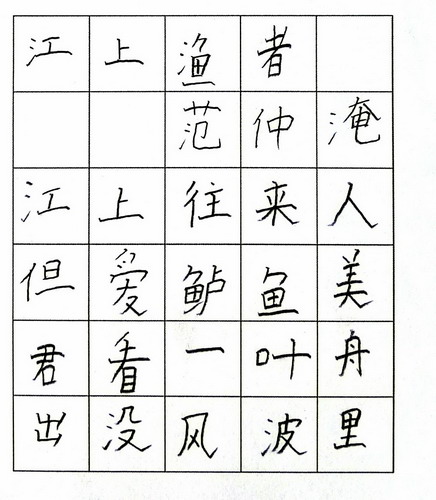 江上渔者
范仲淹
江上往来人
但爱鲈鱼美
君看一叶舟
出没风波里